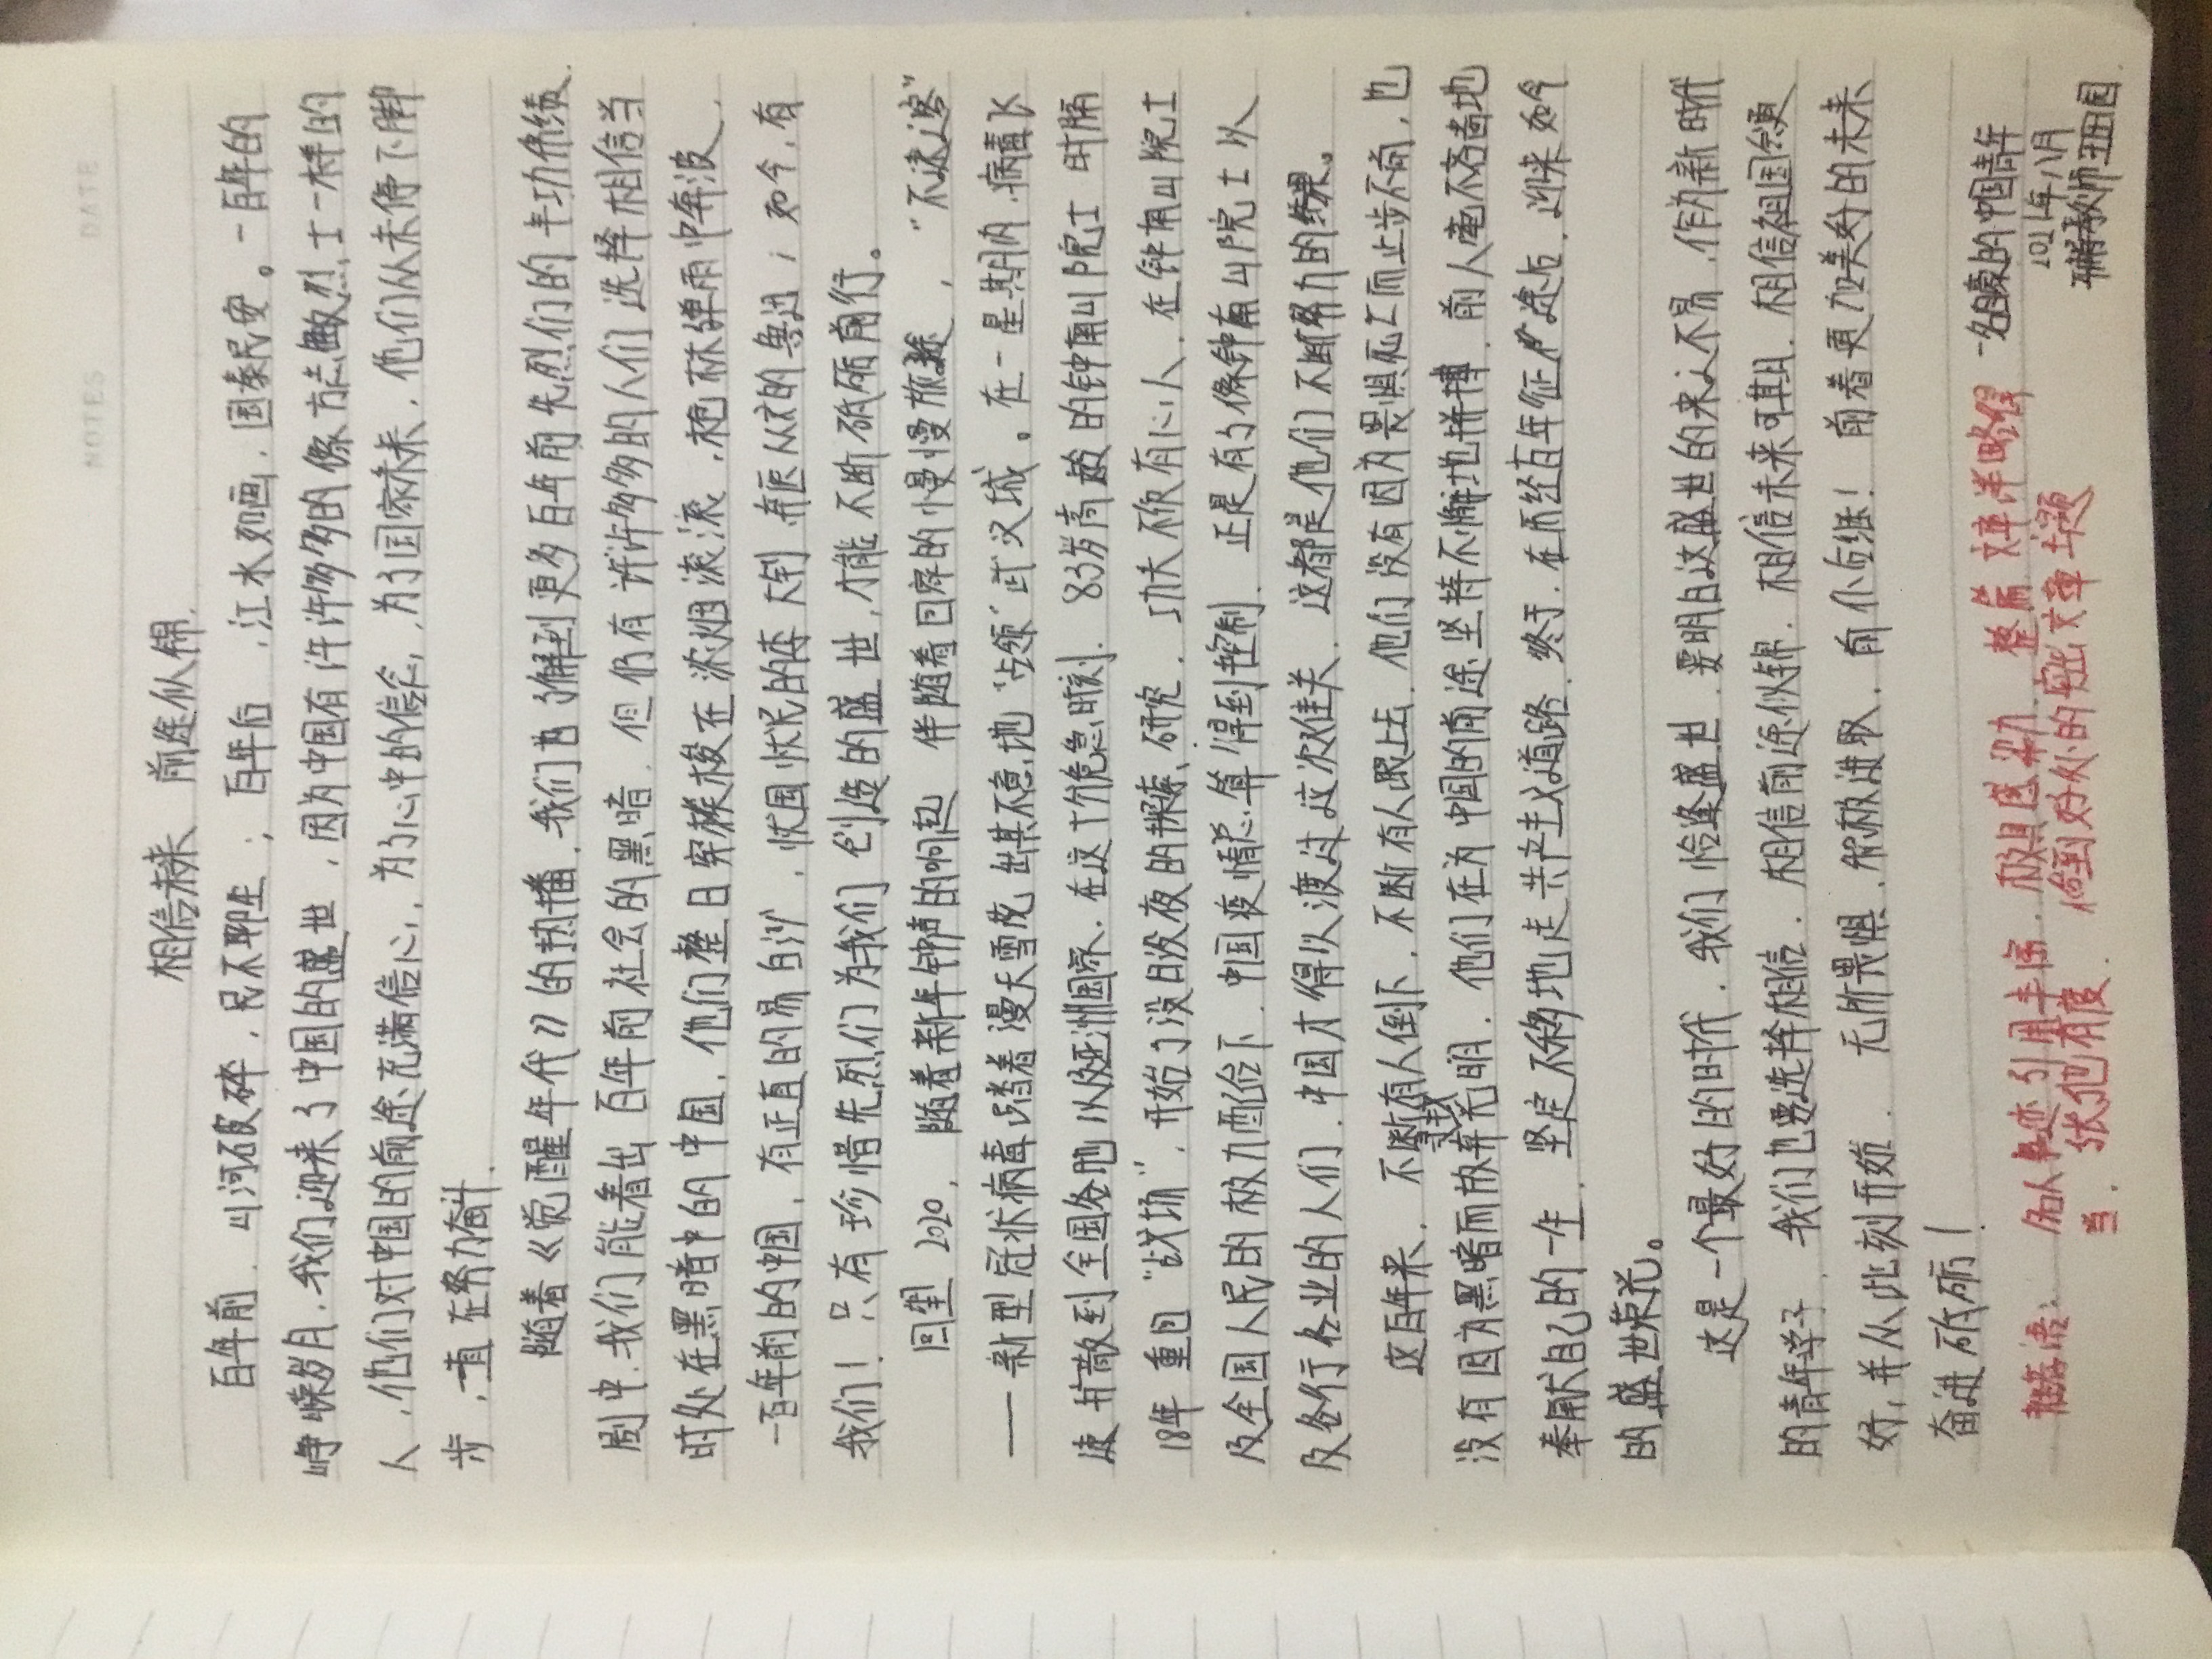 NOTES DATE
相信未来 前途似锦.
百年前.山河破碎,民不聊生;百年后,江水如画.国泰民安。一百年的
峥嵘岁月.我们迎来了中国的盛世,因为中国有许许多多的像方志敏烈士一样的
人.他们对中国的前途充满信心,为了心中的信念,为了国家未来.他们从未停下脚
步,一直在努力奋斗.
随着《觉醒年代》的热播.我们也了解到更多百年前先烈们的丰功伟绩.
剧中.我们能看出百年前社会的黑暗.但仍有许许多多的人们选择相信当
时处在黑暗中的中国.他们整日穿梭在浓烟滚滚.枪林弹雨中奔波.
一百年前的中国.有正直的易白沙,忧国忧民的李大钊 弃医从文的鲁迅;如今,有
我们!只有珍惜先烈们为我们创造的盛世,才能不断砥砺前行。
回望2020,随着新年钟声的响起 伴随着回家的慢慢旅途,“不速之客”
——新型冠状病毒踏着漫天雪花 出其不意地“占领”武汉城。在一星期内.病毒飞
速扩散到全国各地以及亚洲国家.在这十分危急时刻.83岁高龄的钟南山院士 时隔
18年 重回“战场”,开始了没日没夜的探索、研究.功夫不负有心人.在钟南山院士
及全国人民的极力配合下.中国疫情总算得到控制.正是有了像钟南山院士以
及各行各业的人们.中国才得以渡过这次难关.这都是他们不断努力的结果。
这百年来.不断有人倒下.不断有人跟上去.他们没有因为畏惧死亡而止步不前,也
没有因为黑暗而放弃寻找光明.他们在为中国的前途坚持不懈地拼搏.前人毫不吝啬地
奉献自己的一生.坚定不移地走共产主义道路.终于.在历经百年征途后.迎来如今
的盛世荣光。
这是一个最好的时代.我们恰逢盛世.要明白这盛世的来之不易.作为新时代
的青年学子.我们也要选择相信.相信前途似锦.相信未来可期.相信祖国会更
好,并从此刻开始.无所畏惧.积极进取.前仆后继!向着更加美好的未来
奋进 砥砺!
一名自豪的中国青年
2021年八月
辅导教师:田园.
批语:名人事迹引用丰富.极具感染力.整篇文章详略得
当.张弛有度.恰到好处的突出文章主题